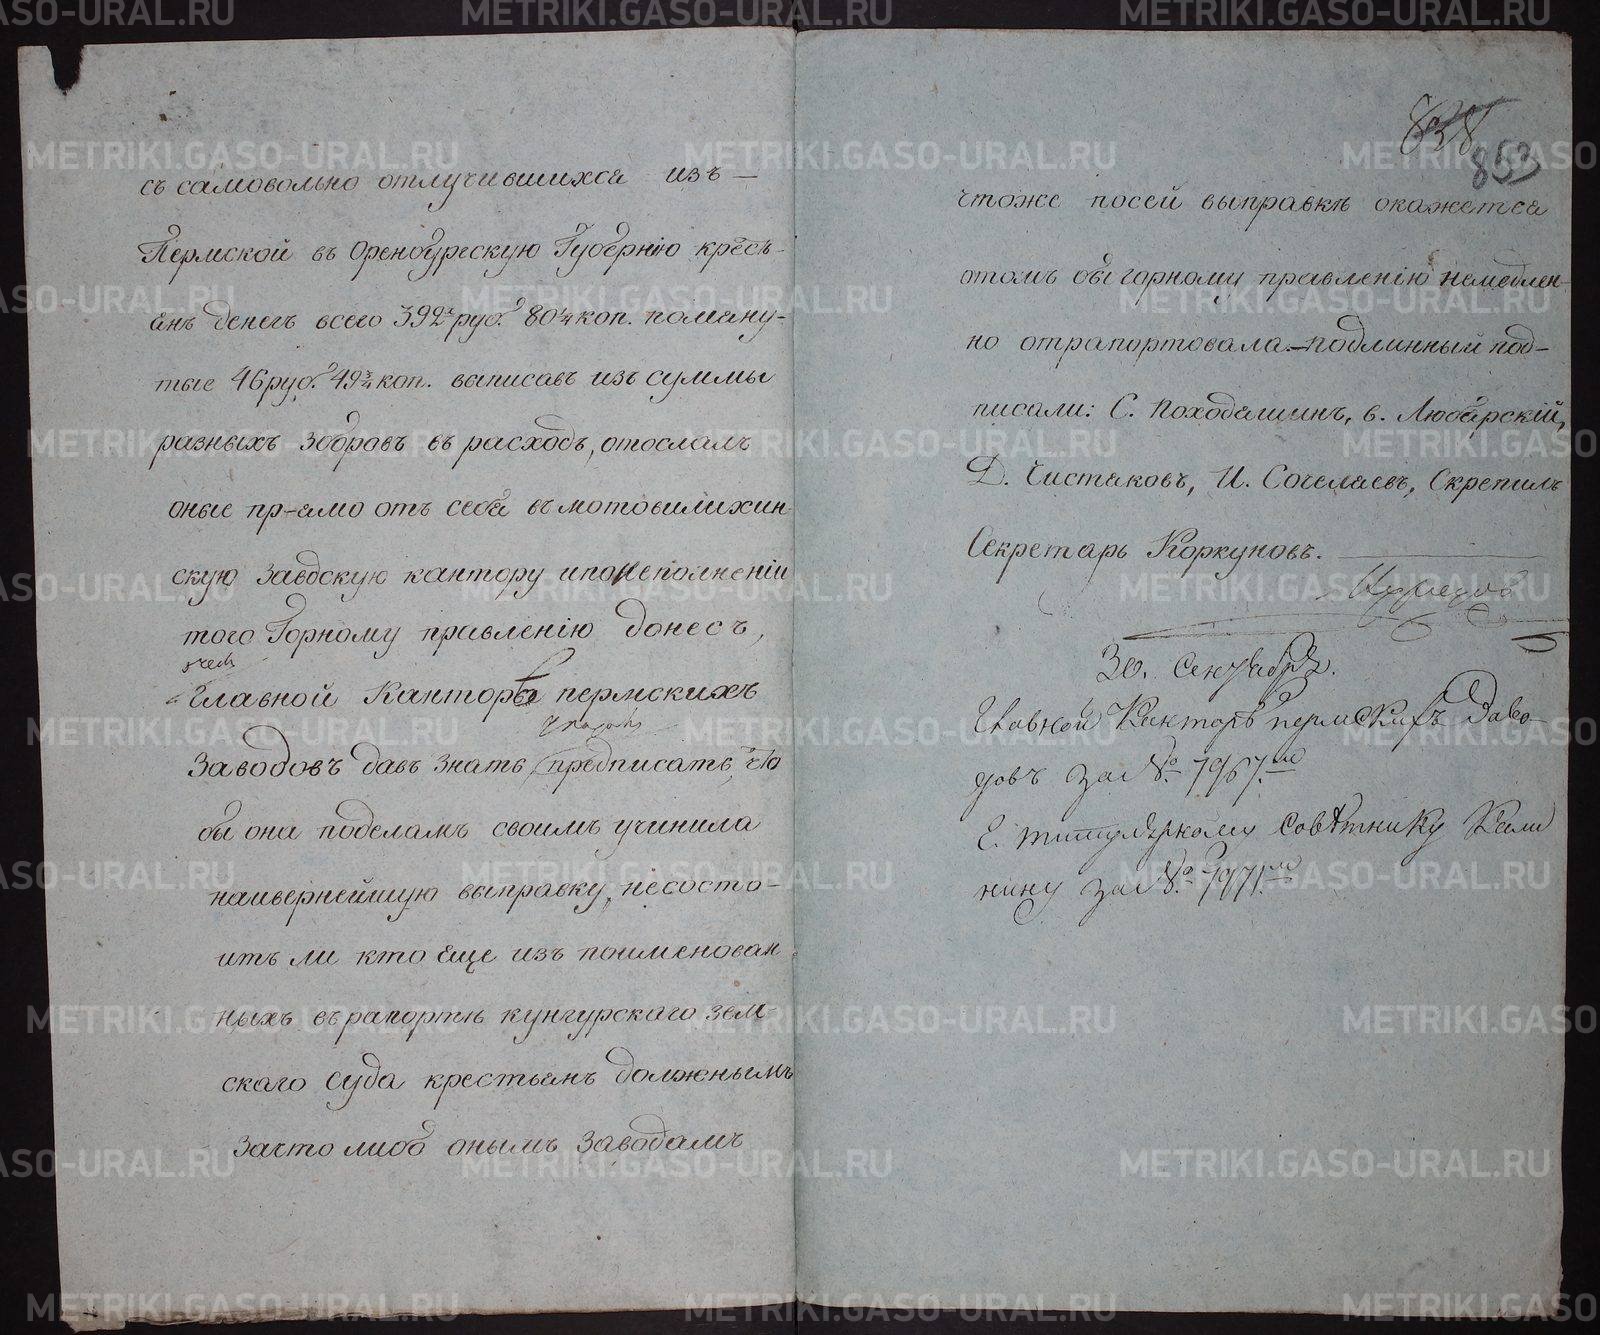 съ самовольно отлучившихся изъ —
Пермской въ Оренбургскую Губернію кресть-
янъ денегъ всего 392 руб. 80¼ коп. помяну-
тые 46 руб. 49¾ коп. выписавъ изъ суммы
разныхъ зборовъ въ расходъ, отослалъ
оные пр-ямо отъ себя въ мотовилихин-
скую заводскую кантору и по исполненіи
того Горному правленію донесъ,
Главной Канторѣ пермскихъ
Заводовъ давъ знать, предписать, что
бы она поделамъ своимъ учинила
наивернейшую выправку, несосто-
итъ ли кто Еще изъ поименован
ныхъ в рапортѣ кунгурскаго зем-
скаго Суда крестьянъ должнымъ
зачто либо онымъ Заводамъ
838
853
чтоже посей выправкѣ окажется
отомъ обы горному правленію немедлен-
но отрапортовала. — подлинный под-
писали: С. Походяшинъ, в. Любарскій,
Д. Чистяковъ, И. Сочелаевъ, Скрепилъ
Секретарь Коркуновъ.
30. Сентября.
Главной Канторѣ пермскихъ Заво-
довъ за № 7967.
С. титулярному совѣтнику Кали
нину за № 7971.
METRIKI.GASO-URAL.RU